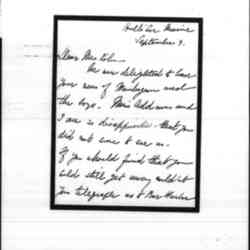 Bar Harbor Maine
September 9.
Dear Mrs
We are delighted to have
your news of and
the boys. Miss Addams and
I are so disappointed that you
did not come to see us.
If you should find that you
could still get away could it
you telegraph us to Bar Harbor